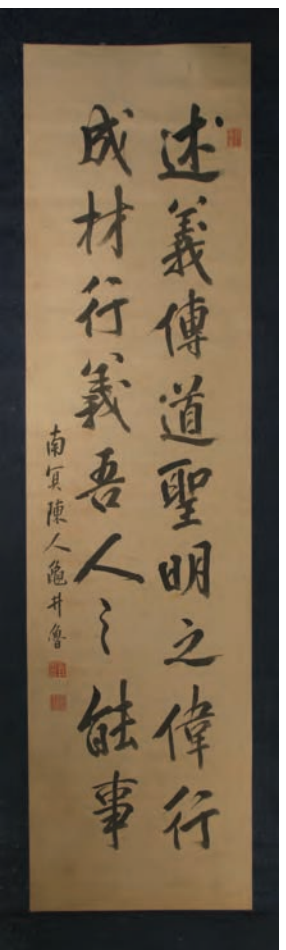 述義傳道聖明之偉行
成材行義吾人之能事
南冥陳人龜井魯